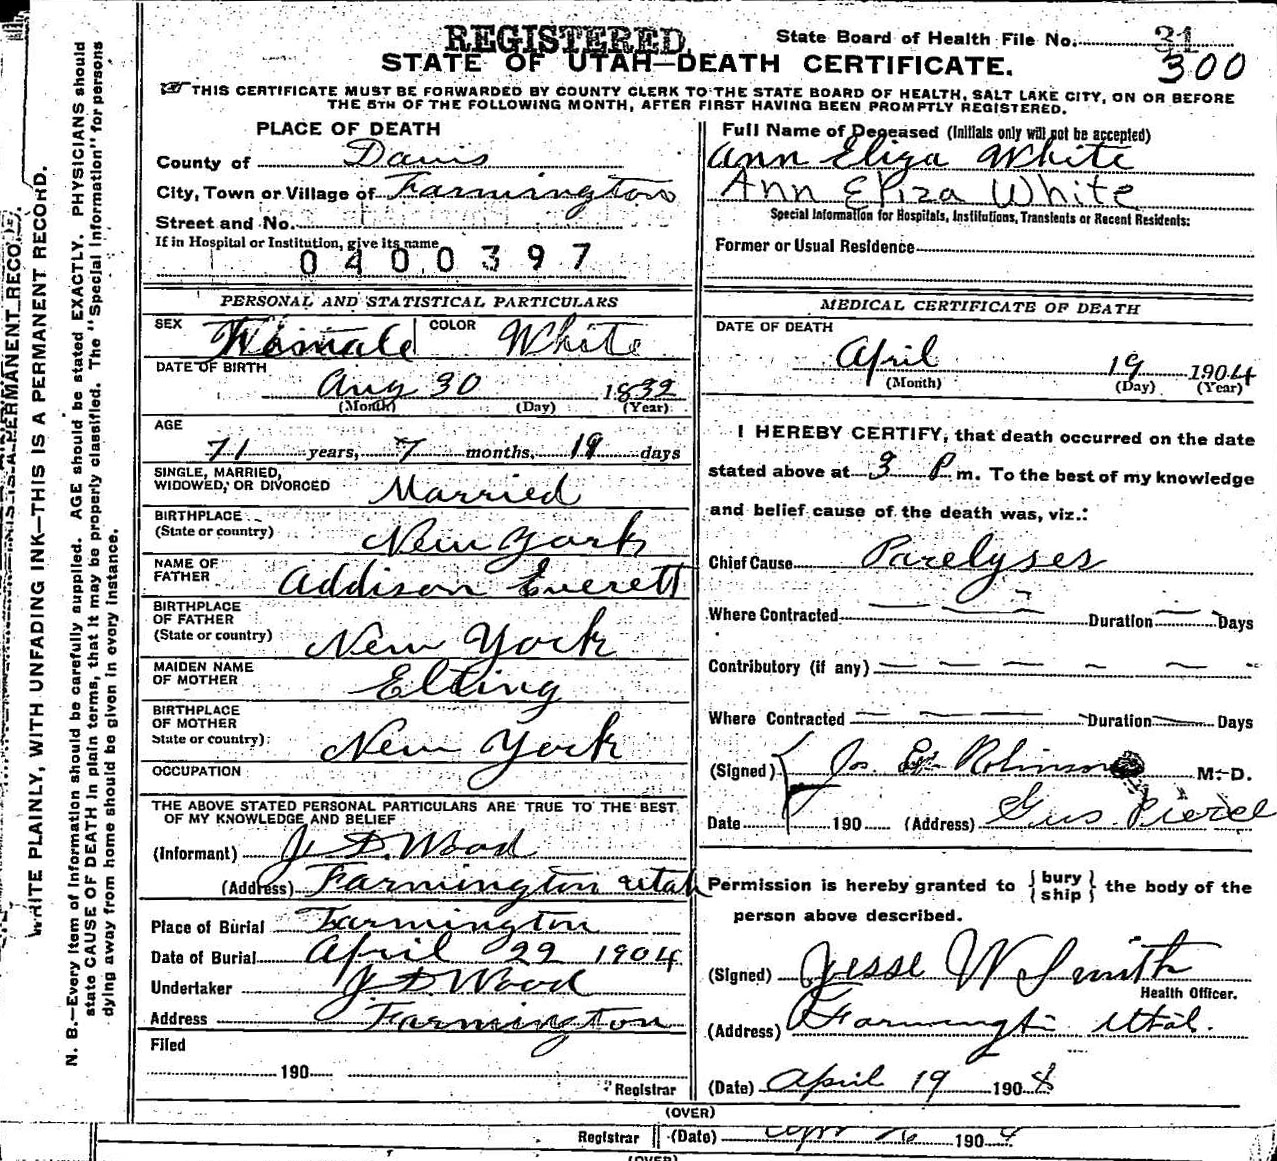 REGISTERED.
State Board of Health File No. 31
300
STATE OF UTAH—DEATH CERTIFICATE.
THIS CERTIFICATE MUST BE FORWARDED BY COUNTY CLERK TO THE STATE BOARD OF HEALTH, SALT LAKE CITY, ON OR BEFORE
THE 5TH OF THE FOLLOWING MONTH, AFTER FIRST HAVING BEEN PROMPTLY REGISTERED.
WRITE PLAINLY, WITH UNFADING INK—THIS IS A PERMANENT RECORD.
N. B.—Every item of information should be carefully supplied. AGE should be stated EXACTLY. PHYSICIANS should
state CAUSE OF DEATH in plain terms, that it may be properly classified. The "Special Information" for persons
dying away from home should be given in every instance.
PLACE OF DEATH
County of Davis
City, Town or Village of Farmington
Street and No.
If in Hospital or Institution, give its name
0400397
PERSONAL AND STATISTICAL PARTICULARS
SEX Female COLOR White
DATE OF BIRTH
Aug 30 1832
(Month) (Day) (Year)
AGE
71 years, 7 months, 19 days
SINGLE, MARRIED,
WIDOWED, OR DIVORCED Married
BIRTHPLACE
(State or country) New York
NAME OF
FATHER Addison Everett
BIRTHPLACE
OF FATHER
(State or country) New York
MAIDEN NAME
OF MOTHER Elting
BIRTHPLACE
OF MOTHER
State or country) New York
OCCUPATION
THE ABOVE STATED PERSONAL PARTICULARS ARE TRUE TO THE BEST
OF MY KNOWLEDGE AND BELIEF
(Informant) J. D. Wood
(Address) Farmington Utah
Place of Burial Farmington
Date of Burial April 22 1904
Undertaker J D Wood
Address Farmington
Filed
190
Registrar
Full Name of Deceased (Initials only will not be accepted)
Ann Eliza White
Ann Eliza White
Special Information for Hospitals, Institutions, Transients or Recent Residents:
Former or Usual Residence
MEDICAL CERTIFICATE OF DEATH
DATE OF DEATH
April 19 1904
(Month) (Day) (Year)
I HEREBY CERTIFY, that death occurred on the date
stated above at 3 P m. To the best of my knowledge
and belief cause of the death was, viz.:
Chief Cause Parelyses
Where Contracted — — — Duration — Days
Contributory (if any) — — — — — —
Where Contracted — — — — Duration — Days
(Signed) Jos. E. Robinson M. D.
Date 190 (Address)
Permission is hereby granted to { bury ship } the body of the
person above described.
(Signed) Jesse W Smith
Health Officer.
(Address) Farmington Utah.
(Date) April 19 1904
(OVER)
Registrar (Date) 1904
(OVER)